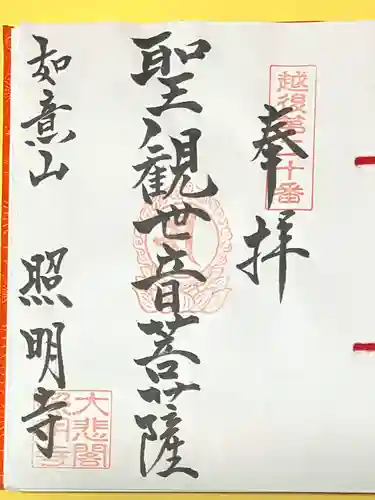 奉拝
越後第二十番
聖観世音菩薩
如意山 照明寺
大悲閣
照明寺